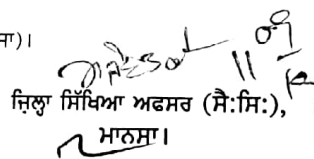 ਸਾ)।
ਜ਼ਿਲ੍ਹਾ ਸਿੱਖਿਆ ਅਫਸਰ (ਸੈ:ਸਿ:),
ਮਾਨਸਾ।